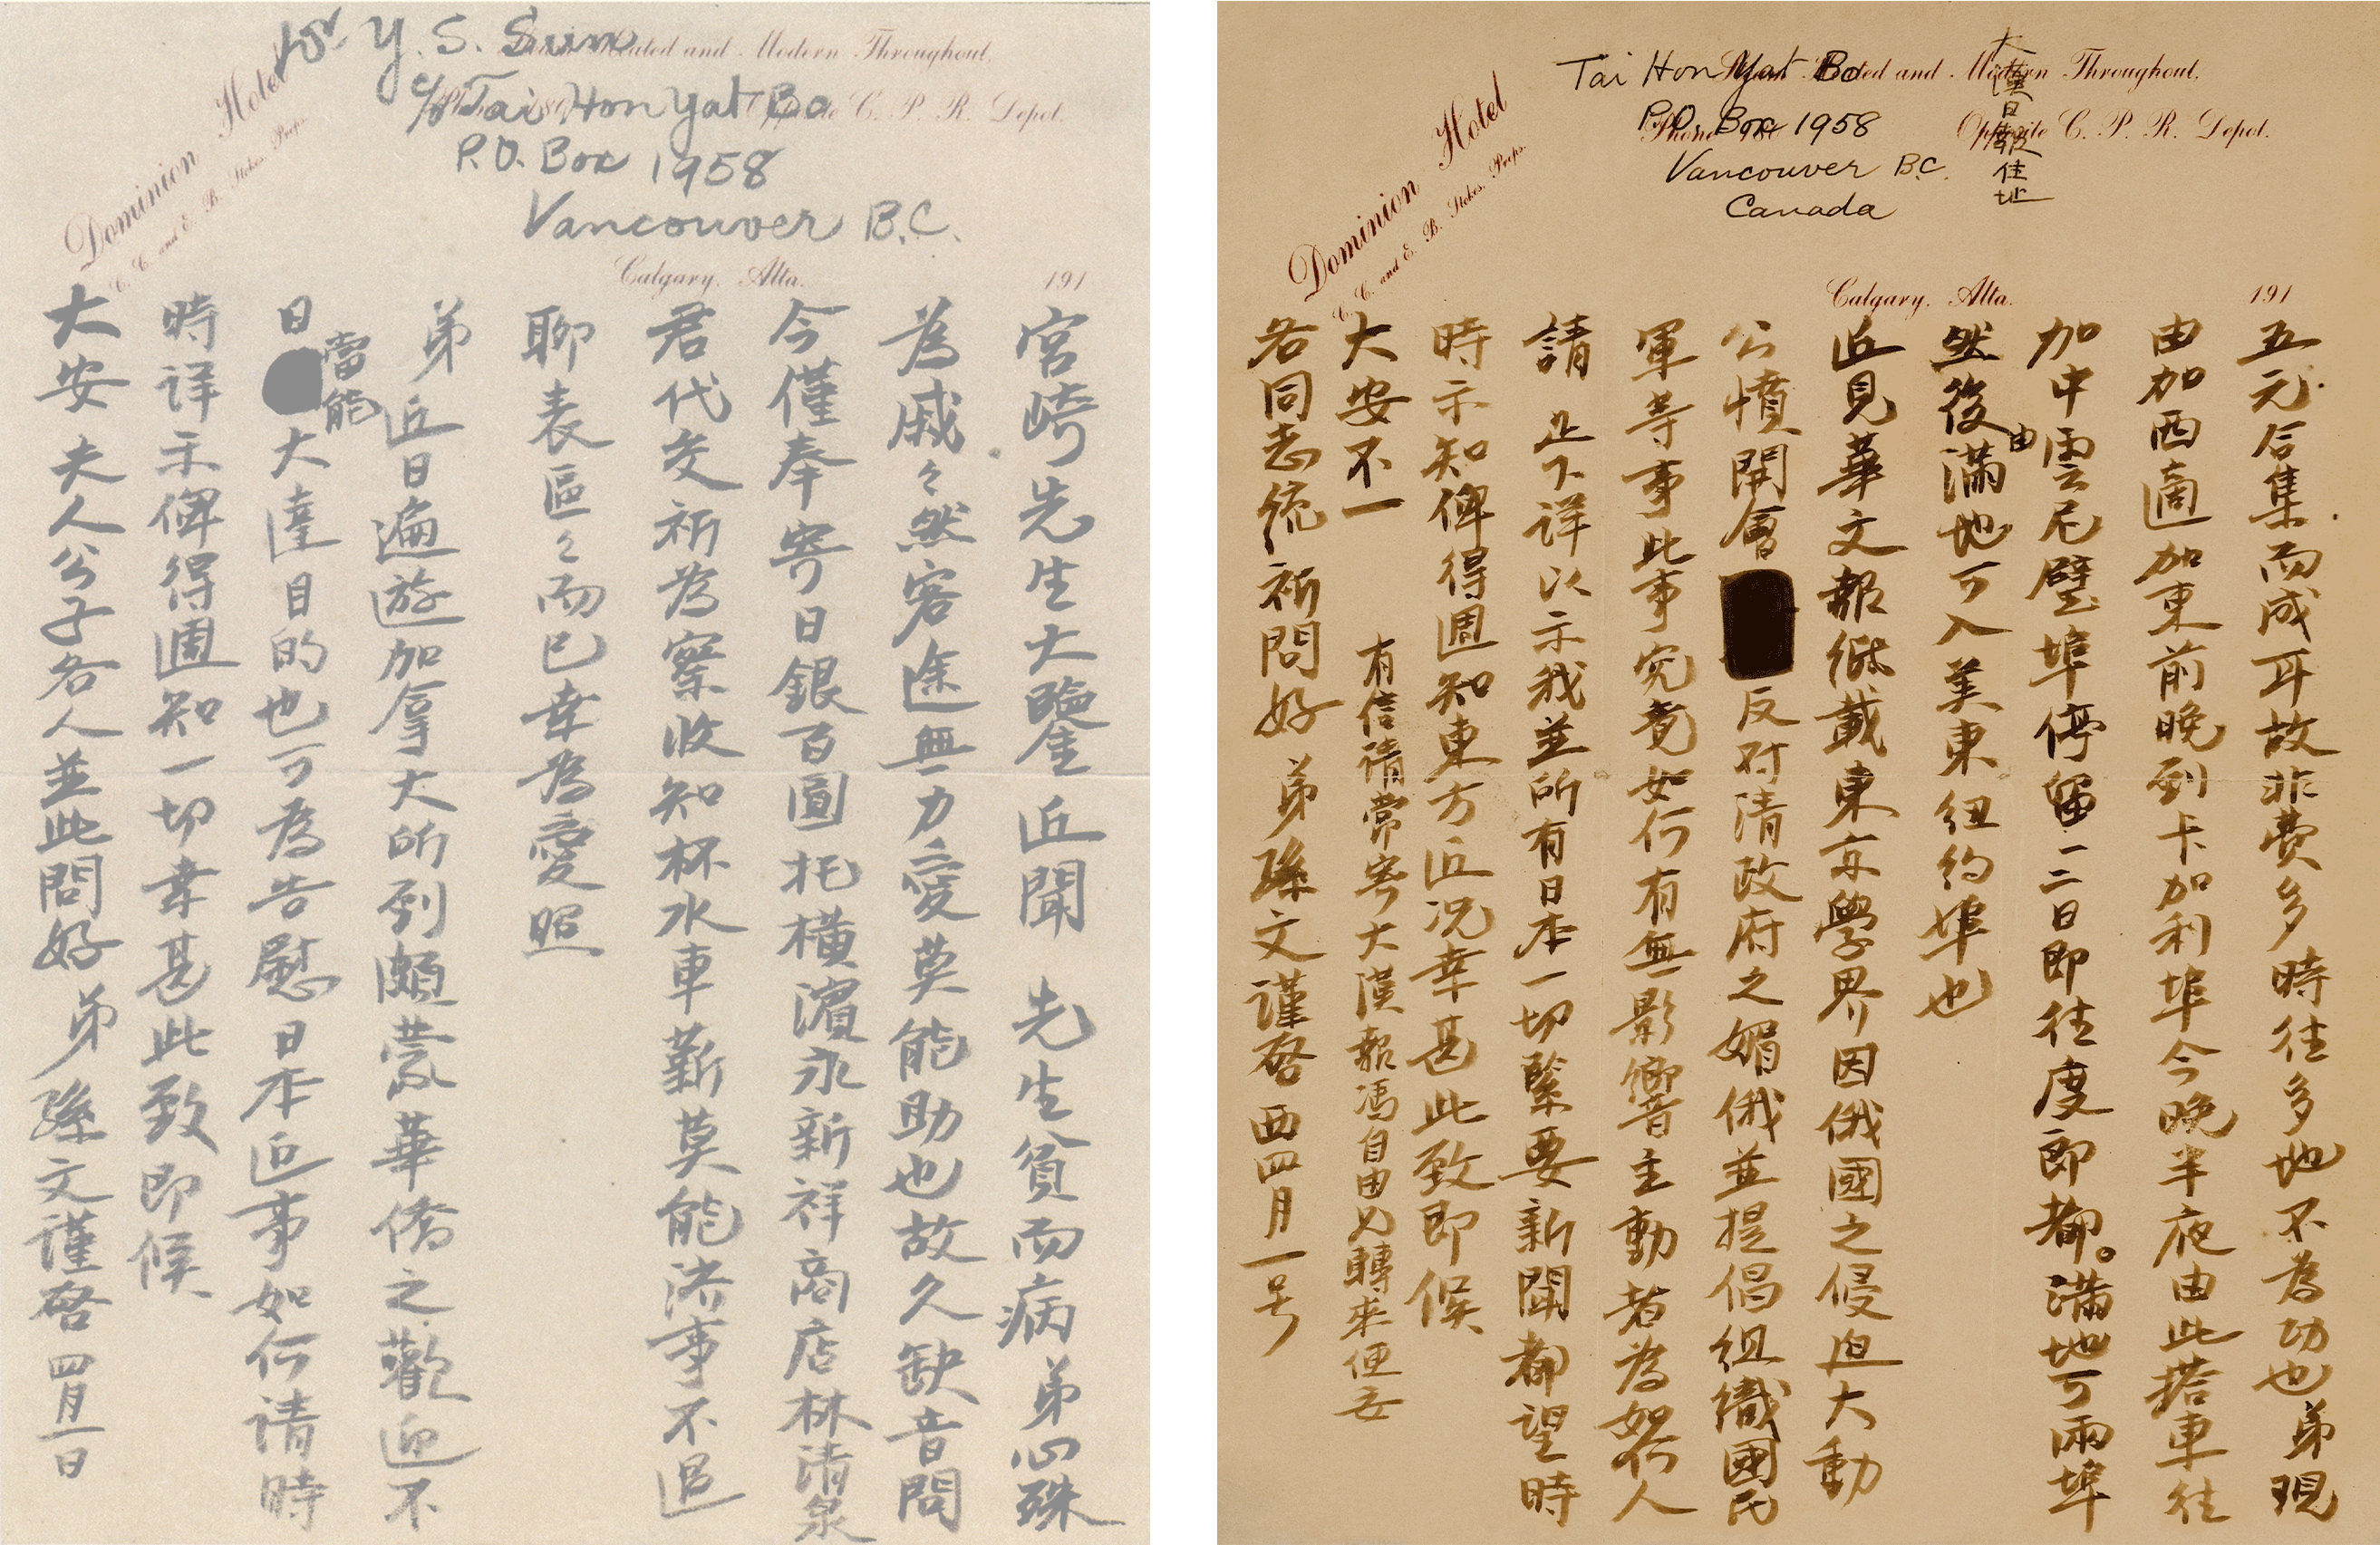 Dr Y. S. Sun
c/o Tai Hon Yat Bo
P.O. Box 1958
Vancouver B.C.
Dominion Hotel
C. C. and E. B. Stokes, Props.
Heated and Modern Throughout,
Opposite C. P. R. Depot.
Calgary, Alta. 191
宮崎先生大鑒 近聞 先生貧而病弟心殊
為戚々然客途無力愛莫能助也故久缺音問
今僅奉寄日銀百圓托橫濱永新祥商店林清泉
君代交祈為察收知杯水車薪莫能濟事不過
聊表區々而已幸為愛照
弟近日遍遊加拿大所到頗蒙華僑之歡迎不
日當能大達目的也可為告慰日本近事如何请時
時详示俾得週知一切幸甚此致即候
大安 夫人公子各人並此問好 弟孫文謹啓 四月一日
Tai Hon Yat Bo
P.O. Box 1958
Vancouver B.C.
Canada
大漢日報住址
Dominion Hotel
C. C. and E. B. Stokes, Props.
Steam Heated and Modern Throughout.
Phone
Opposite C. P. R. Depot.
Calgary, Alta. 191
五元合集而成耳故非費多時往多地不為功也弟現
由加西適加東前晚到卡加利埠今晚半夜由此搭車往
加中雲尼壁埠停留一二日即往度即都。滿地可兩埠
然後由滿地可入美東紐約埠也
近見華文報紙載東京學界因俄國之侵迫大動
公憤開會反对清政府之媚俄並提倡組織國民
軍等事此事究竟如何有無影響主動者為如何人
請 足下详以示我並所有日本一切緊要新聞都望時
時示知俾得週知東方近况幸甚此致即候
大安不一 有信请常寄大漢報馮自由兄轉來便妥
各同志統祈問好 弟孫文謹啓 西四月一号